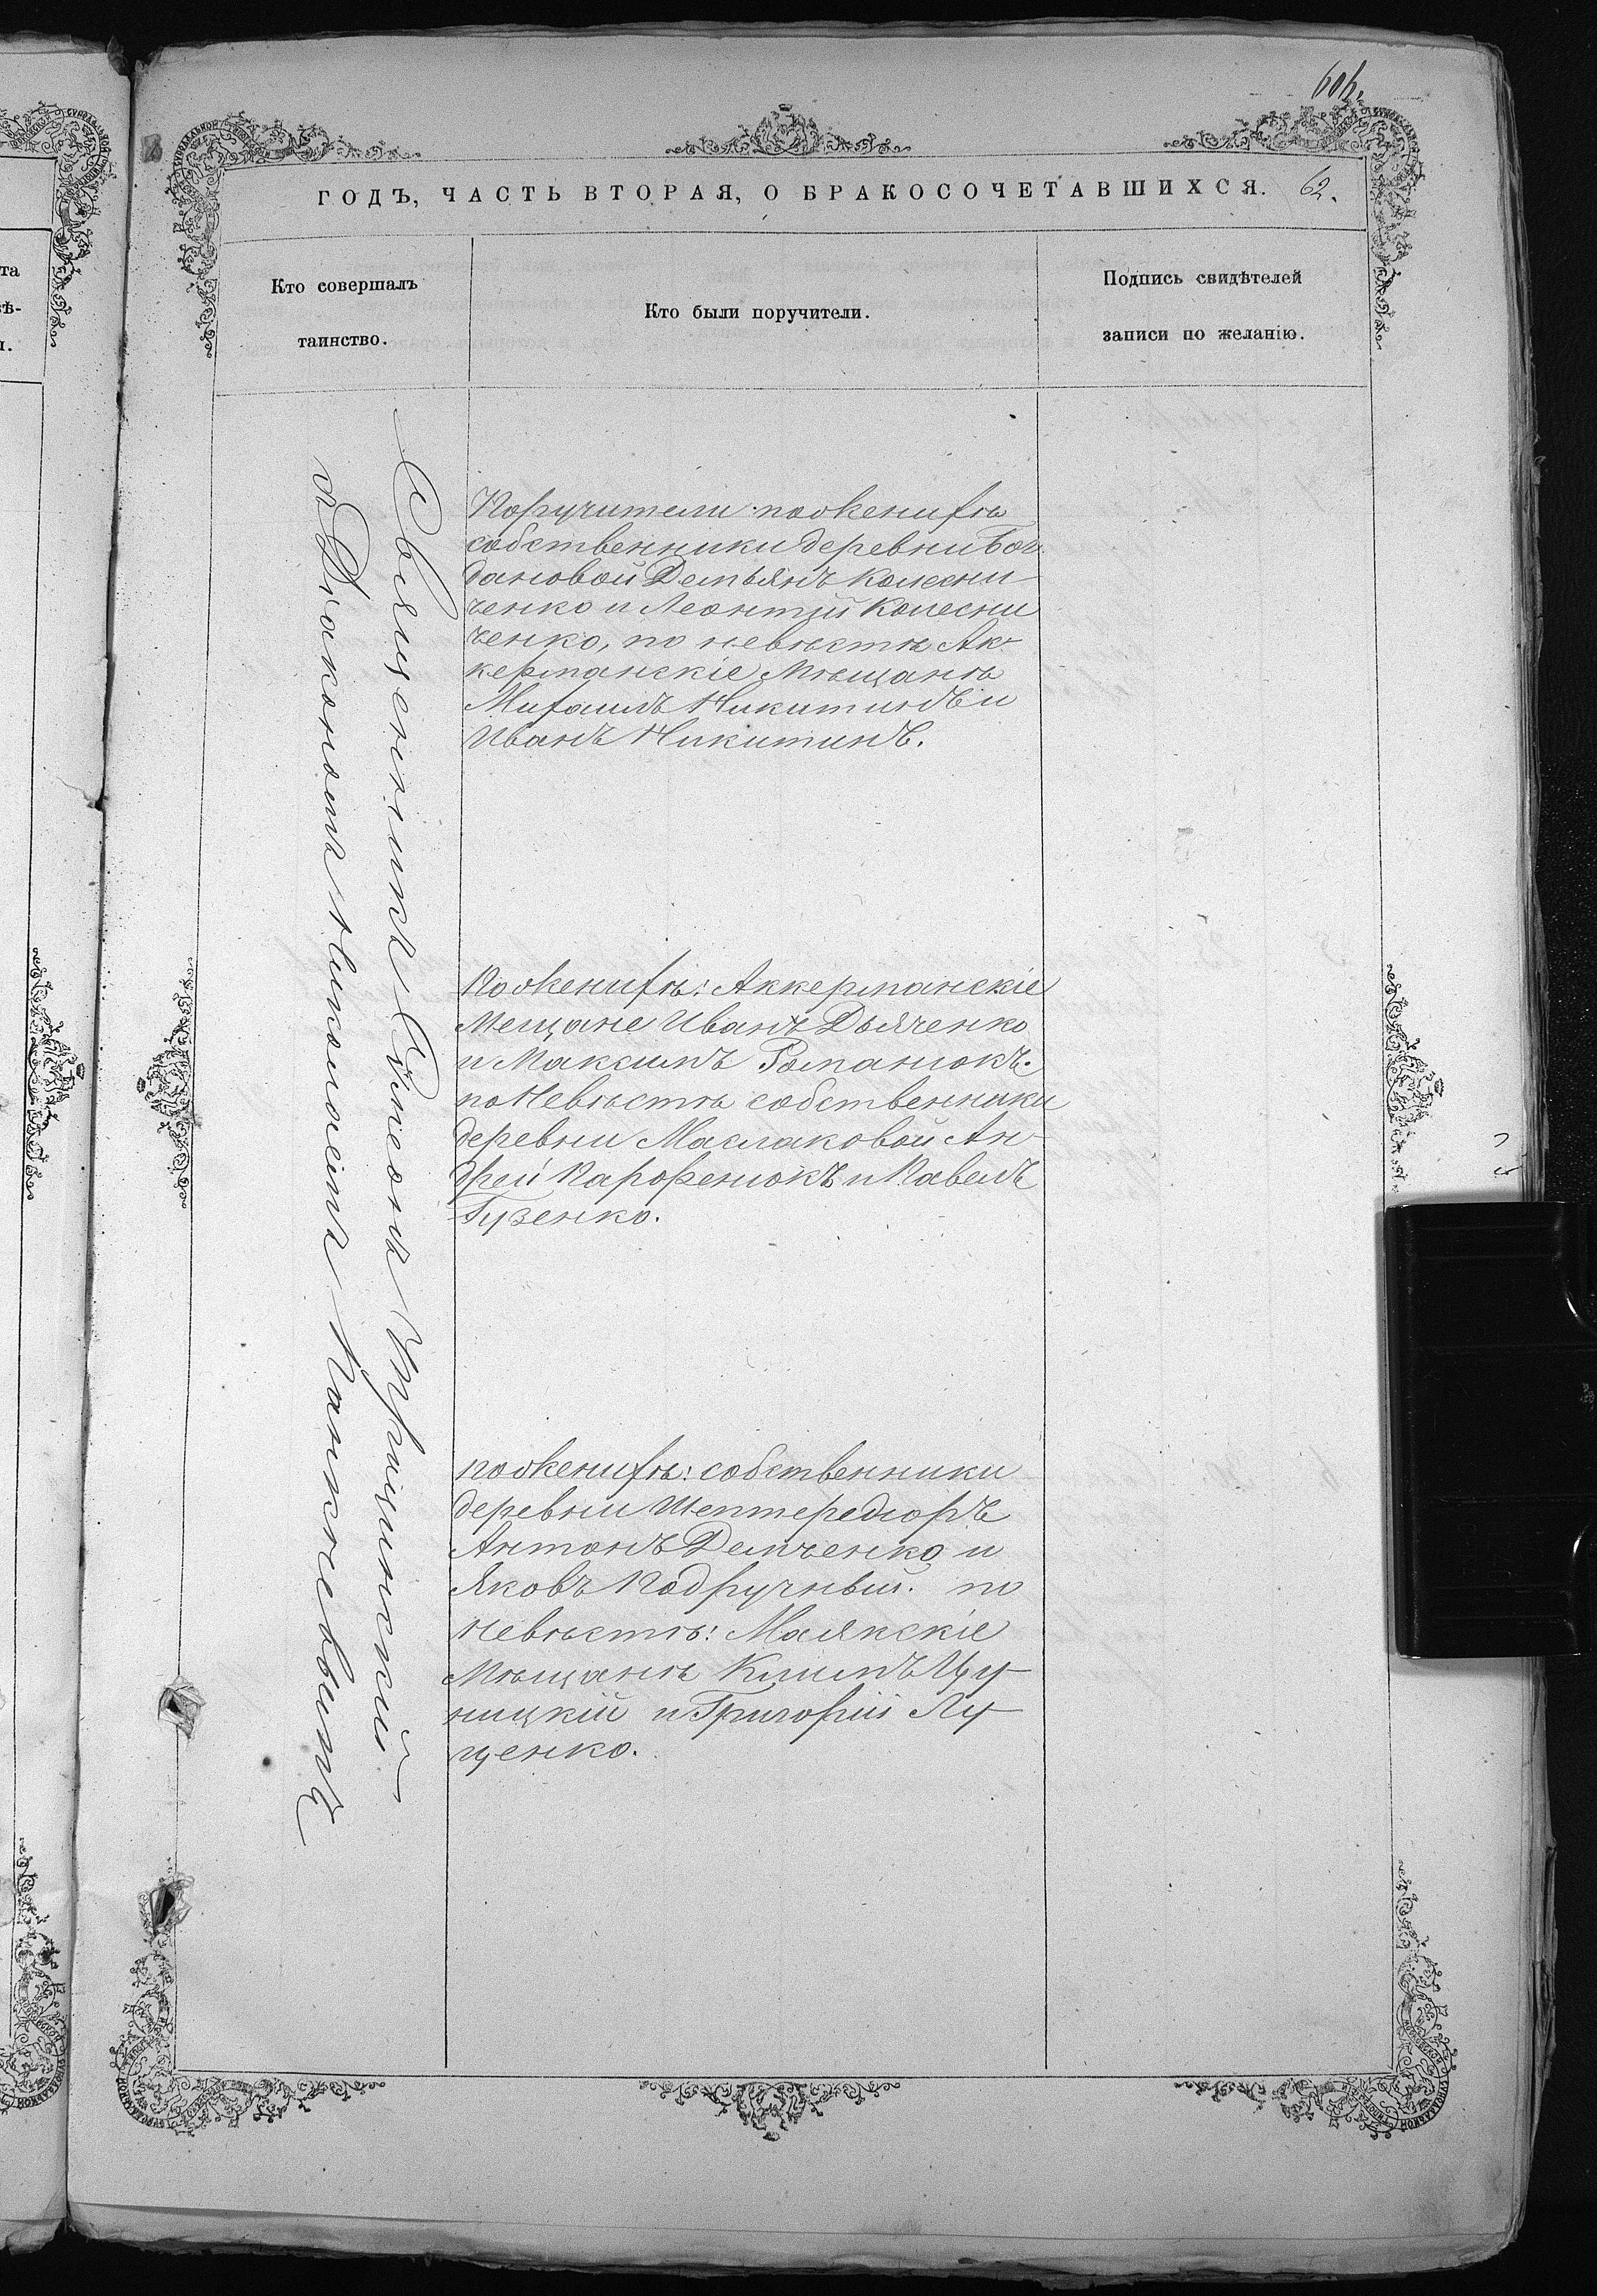 606.
ГОДЪ, ЧАСТЬ ВТОРАЯ, О БРАКОСОЧЕТАВШИХСЯ. 62.
Кто совершалъ
таинство.
Кто были поручители.
Подпись свидѣтелей
записи по желанію.
Священникъ Симеонъ
и Діаконъ Николай
Поручители по женихѣ
собственники деревни Бог
дановой Демьянъ Колесни-
ченко и Леонтій Колесни
ченко, по невѣстѣ Ак-
керманскіе Мѣщанѣ
Михаилъ Никитинъ и
Иванъ Никитинъ.
По женихѣ: Аккерманскіе
Мещане Иванъ Дьяченко
и Максимъ Романюкъ.
по Невѣстѣ собственники
деревни Маслаковой Ан-
дрей Парфенюкъ и Павелъ
Гузенко.
по женихѣ: собственники
деревни Шептередюръ
Антонъ Демченко и
Яковъ Подручный. по
Невѣстѣ: Маякскіе
Мѣщанѣ Климъ Цу-
ницкій и Григорій Лу-
ценко.